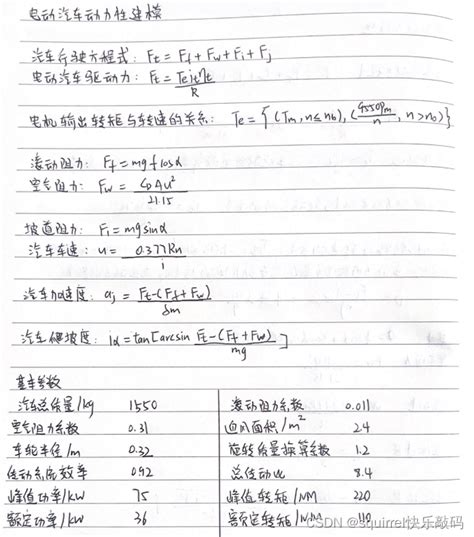 电动汽车动力性建模
汽车行驶方程式: Ft = Ff + Fw + Fi + Fj
电动汽车驱动力: Ft = Te it ηt / R
电机输出转矩与转速的关系: Te = {(Tm, n ≤ nb), (9550Pm / n, n > nb)}
滚动阻力: Ff = mgf cosα
空气阻力: Fw = CD A u² / 21.15
坡道阻力: Fi = mg sinα
汽车车速: u = 0.377Rn / i
汽车加速度: aj = Ft-(Ff+Fw) / δm
汽车爬坡度: iα = tan[arcsin Ft-(Ff+Fw) / mg]
基本参数
汽车总质量/kg 1550 滚动阻力系数 0.011
空气阻力系数 0.31 迎风面积/m² 2.4
车轮半径/m 0.32 旋转质量换算系数 1.2
传动系统效率 0.92 总传动比 8.4
峰值功率/kW 75 峰值转矩/NM 220
额定功率/kW 36 额定转矩/NM 110
CSDN @squirrel快乐敲码